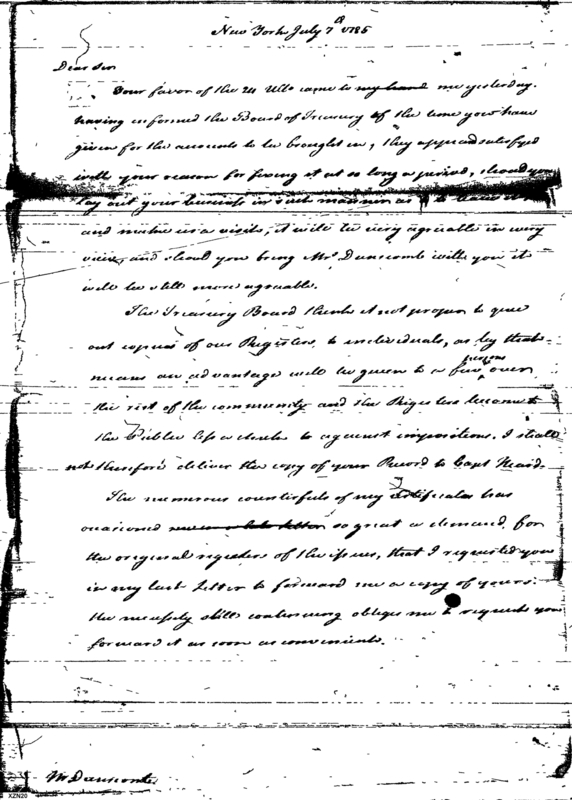 New York July 7th 1785
Dear Sir
Your favor of the 24 Ulto came to my hand me yesterday.
having informed the Board of Treasury of the time you have
given for the accounts to be brought in, they appeard satisfyed
with your reason for fixing it at so long a period, should you
lay out your business in such manner as to leave it
and make us a visit, it will be very agreable in every
view, and should you bring Mrs Dunscomb with you it
will be still more agreable.
The Treasury Board thinks it not proper to give
out copies of our Registers to individuals, as by that
means an advantage will be given to a few persons over
the rest of the community and the Registers become to
the Public less a check to against impositions. I shall
not therefore deliver the copy of your Record to Capt Heard.
The numerous counterfeits of my Certificates has
occasioned so great a demand for
the original registers of the issues, that I requested you
in my last Letter to forward me a copy of yours.
the necessity still continuing obliges me to request you
forward it as soon as convenient.
Mr Dunscomb.
XZN20